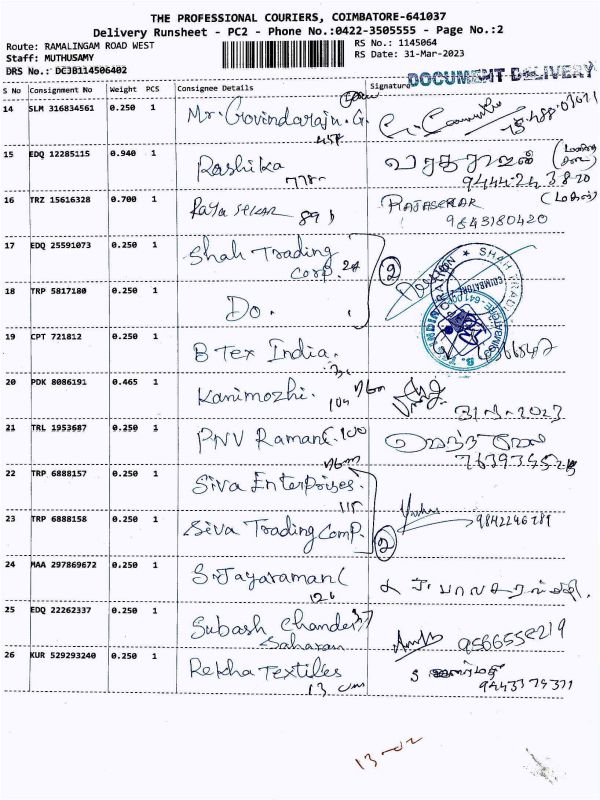 THE PROFESSIONAL COURIERS, COIMBATORE-641037
Delivery Runsheet - PC2 - Phone No.:0422-3505555 - Page No.:2
Route: RAMALINGAM ROAD WEST
RS No.: 1145064
Staff: MUTHUSAMY
RS Date: 31-Mar-2023
DRS No.: DCJB114506402
DOCUMENT DELIVERY
S No Consignment No Weight PCS Consignee Details Signature
14 SLM 316834561 0.250 1 Mr. Govindaraju. G.
15 EDQ 12285115 0.940 1 Rashika
778
9444-24 3820
16 TRZ 15616328 0.700 1 Raja sekar 891 RAJASEKAR
9843180420
17 EDQ 25591073 0.250 1 Shah Trading
Corp. 2
18 TRP 5817180 0.250 1 Do.
19 CPT 721812 0.250 1 B Tex India.
20 PDK 8086191 0.465 1 Kanimozhi.
31-3-2023
21 TRL 1953687 0.250 1 PNV Raman 100
22 TRP 6888157 0.250 1 Siva Enterprises.
115
23 TRP 6888158 0.250 1 Siva Trading Comp. 2
9842246789
24 MAA 297869672 0.250 1 S. Jayaraman
126
25 EDQ 22262337 0.250 1 Subash Chander 37
Saharan
9566556219
26 KUR 529293240 0.250 1 Rekha Textiles
13
9443374371
13-02